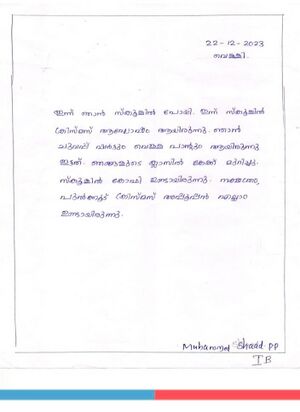 22-12-2023
വെള്ളി.
ഇന്ന് ഞാൻ സ്കൂളിൽ പോയി. ഇന്ന് സ്കൂളിൽ
ക്രിസ്മസ് ആഘോഷം ആയിരുന്നു. ഞാൻ
ചുവപ്പ് ഷർട്ടും വെള്ള പാന്റും ആയിരുന്നു
ഇട്ടത്. ഞങ്ങളുടെ ക്ലാസിൽ കേക്ക് മുറിച്ചു.
സ്കൂളിൽ കരോൾ ഉണ്ടായിരുന്നു. നക്ഷത്രം,
പുൽക്കൂട് ക്രിസ്മസ് അപ്പൂപ്പൻ എല്ലാം
ഉണ്ടായിരുന്നു.
Muhammed Shaad. PP
I B